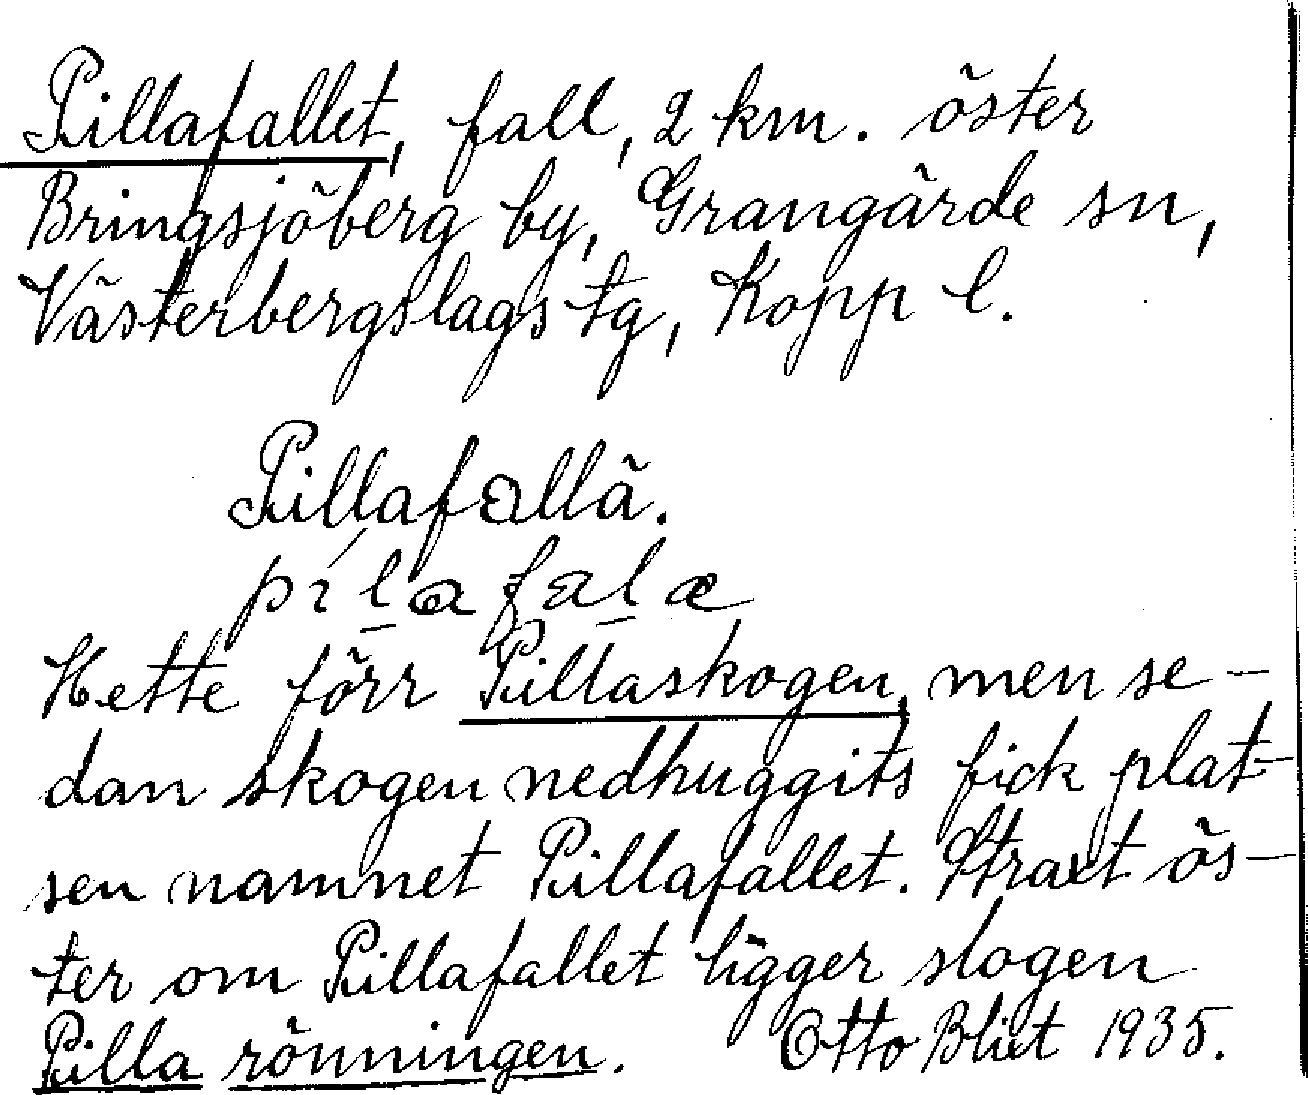 Pillafallet, fall, 2 km. öster
Bringsjöberg by, Grangärde sn,
Västerbergslags tg, Kopp l.
Pillafallä.
Hette förr Pillaskogen, men se-
dan skogen nedhuggits fick plat-
sen namnet Pillafallet. Straxt ös-
ter om Pillafallet ligger slogen
Pilla rönningen. Otto Blixt 1935.